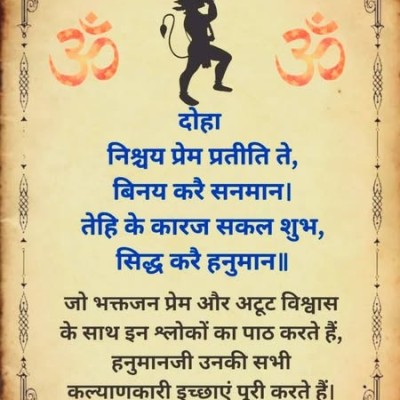 ॐ ॐ
दोहा
निश्चय प्रेम प्रतीति ते,
बिनय करै सनमान।
तेहि के कारज सकल शुभ,
सिद्ध करै हनुमान॥
जो भक्तजन प्रेम और अटूट विश्वास
के साथ इन श्लोकों का पाठ करते हैं,
हनुमानजी उनकी सभी
कल्याणकारी इच्छाएं पूरी करते हैं।